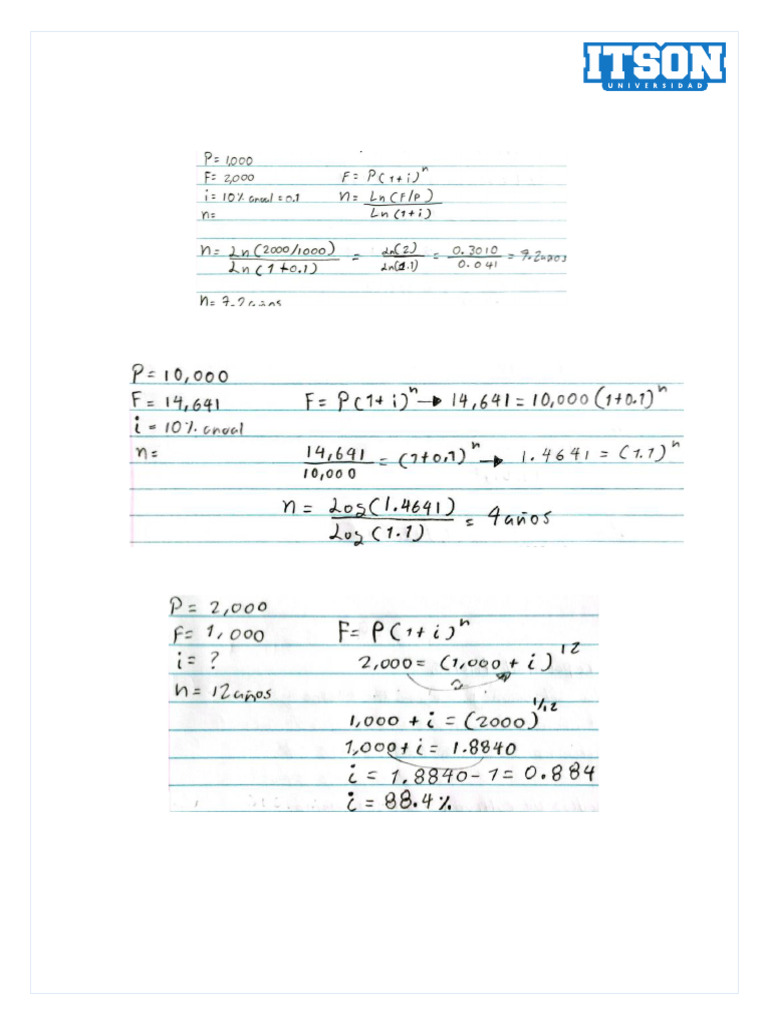 ITSON
UNIVERSIDAD
P= 1,000
F= 2,000 F= P(1+i)^n
i= 10% anual = 0.1 n= Ln(F/P)
n= Ln(1+i)
n= Ln(2000/1000) = Ln(2) = 0.3010 = 7.2años
Ln(1+0.1) Ln(1.1) 0.041
n= 7.2 años
P= 10,000
F= 14,641 F= P(1+i)^n → 14,641 = 10,000(1+0.1)^n
i= 10% anual
n= 14,641 = (1+0.1)^n → 1.4641 = (1.1)^n
10,000
n= Log(1.4641) = 4años
Log(1.1)
P= 2,000
F= 1,000 F= P(1+i)^n
i= ? 2,000= (1,000+i)^12
n= 12años
1,000+i = (2000)^1/12
1,000+i = 1.8840
i= 1.8840-1= 0.884
i= 88.4%